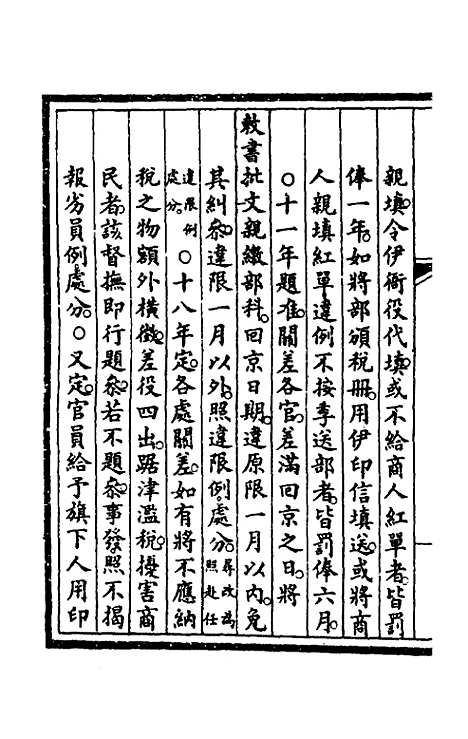 親填令伊衙役代填或不給商人紅單者皆罰
俸一年如將部頒稅冊用伊印信填送或將商
人親填紅單違例不按季送部者皆罰俸六月
○十一年題准關差各官差滿回京之日將
敕書批文親繳部科回京日期違原限一月以內免
其糾參違限一月以外照違限例處分尋改爲照赴任
違限例處分○十八年定各處關差如有將不應納
稅之物額外橫徵差役四出踞津濫稅擾害商
民者該督撫即行題參若不題參事發照不揭
報劣員例處分○又定官員給予旗下人用印